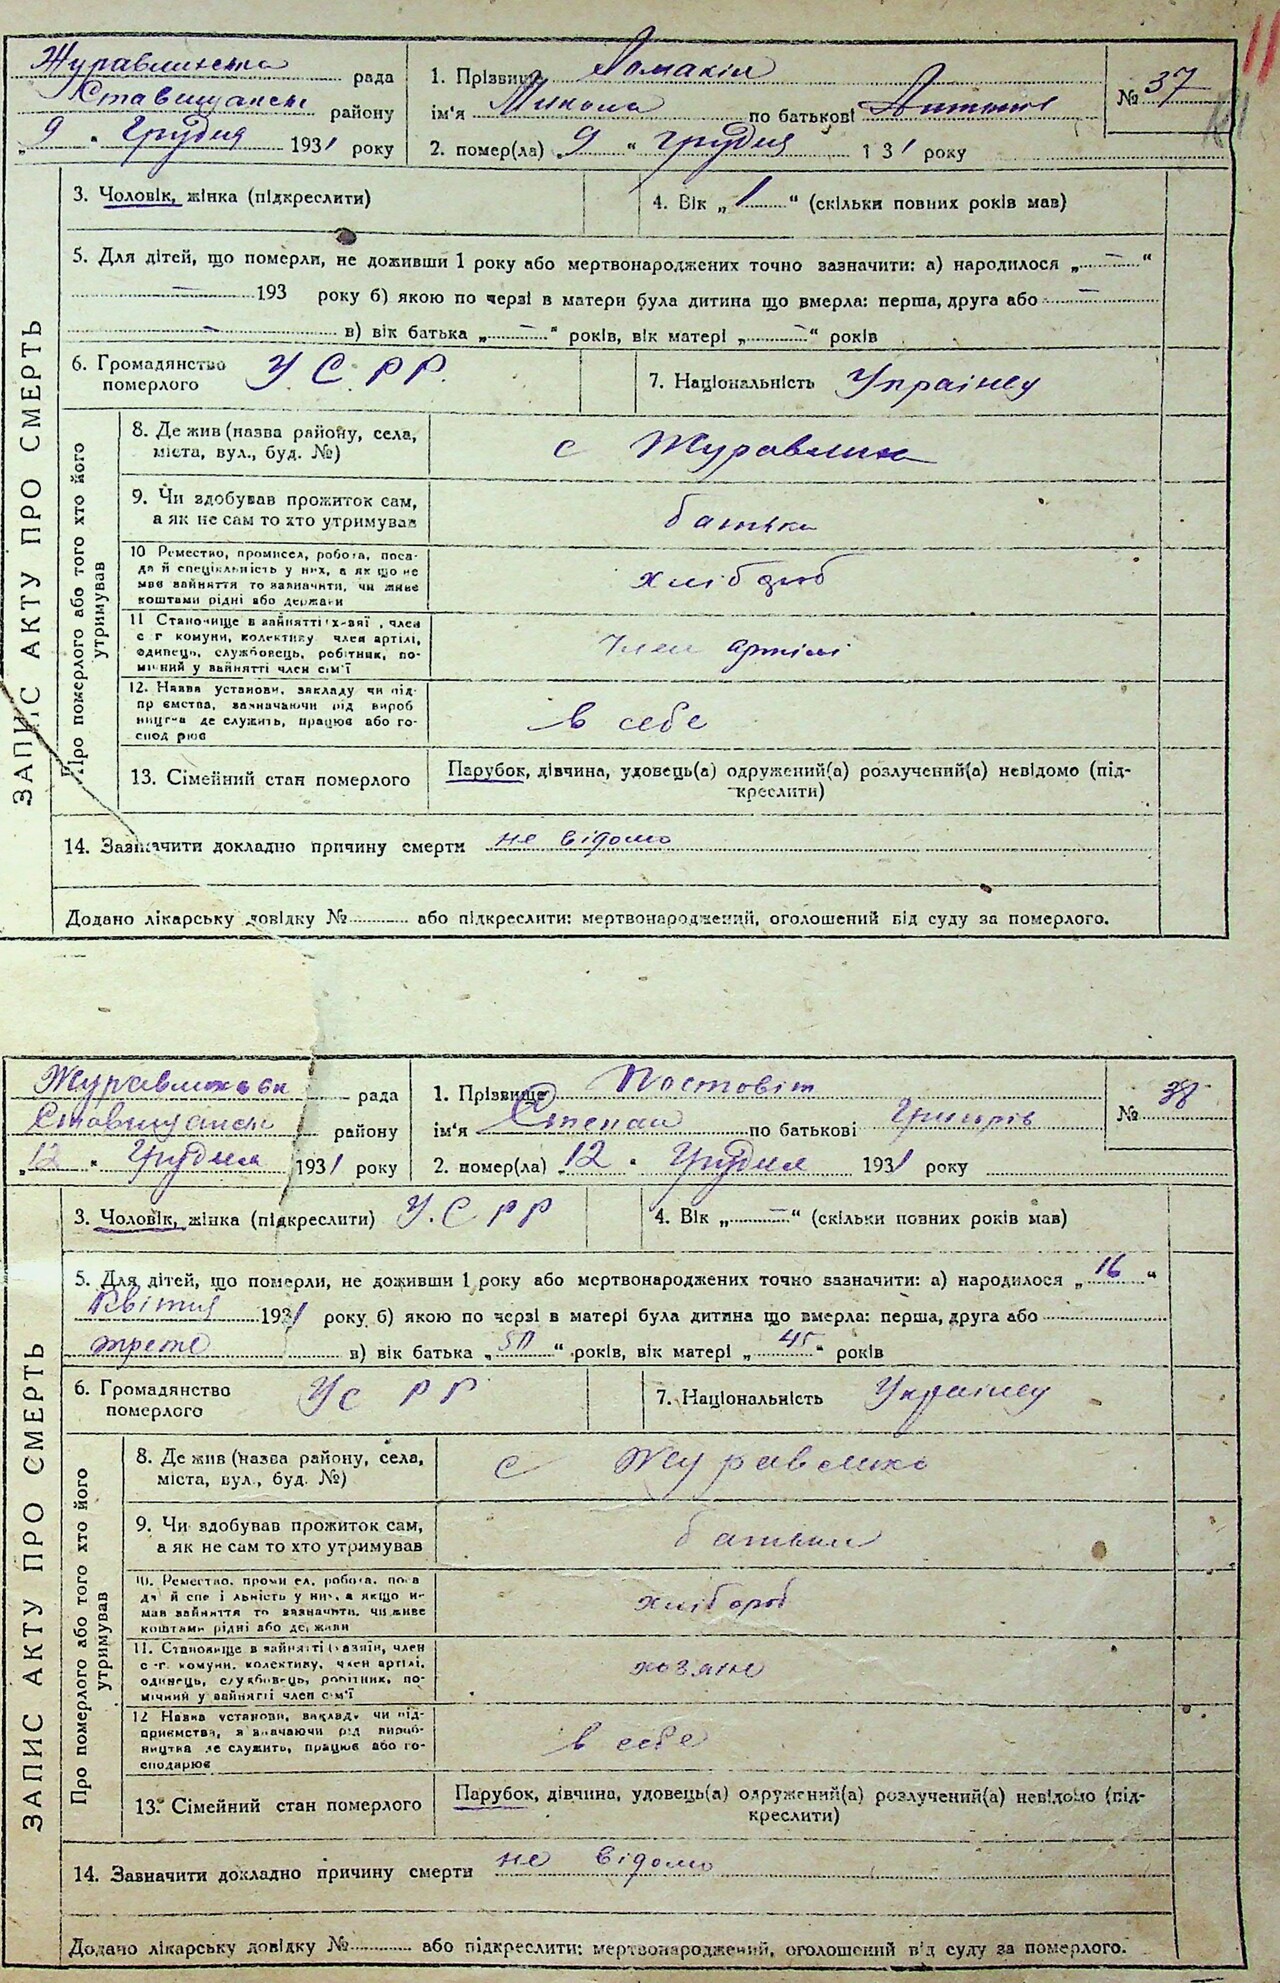 11
Журавлинська рада
Ставищанськ району
„9" Грудня 1931 року
1. Прізвище Ломакін
ім'я Микола по батькові Антон
2. помер(ла) „9" грудня 1 31 року
№ 37
ЗАПИС АКТУ ПРО СМЕРТЬ
3. Чоловік, жінка (підкреслити)
4. Вік „1" (скільки повних років мав)
5. Для дітей, що померли, не доживши 1 року або мертвонароджених точно зазначити: а) народилося „—"
— 193 року б) якою по черзі в матери була дитина що вмерла: перша, друга або —
— в) вік батька „—" років, вік матері „—" років
6. Громадянство померлого У.С.РР.
7. Національність Українец
Про померлого або того хто його утримував
8. Де жив (назва району, села,
міста, вул., буд. №)
с Журавлиха
9. Чи здобував прожиток сам,
а як не сам то хто утримував
батьки
10 Ремество, промисел, робота, поса-
да й спеціяльність у них, а як що не
мав зайняття то зазначити, чи живе
коштами рідні або держави
хлібороб
11 Становище в зайнятті х-заї , член
с г комуни, колективу член артілі,
одинець, службовець, робітник, по-
мічний у зайнятті член сім'ї
член артілі
12. Назва установи, закладу чи під-
приємства, зазначаючи рід вироб
ництва де служить, працює або го-
сподарює
в себе
13. Сімейний стан померлого
Парубок, дівчина, удовець(а) одружений(а) розлучений(а) невідомо (під-
креслити)
14. Зазначити докладно причину смерти не відомо
Додано лікарську довідку № або підкреслити: мертвонароджений, оголошений від суду за померлого.
рада
Ставищанськ району
„12" Грудня 1931 року
1. Прізвище Постовіт
ім'я Степан по батькові Григорів
2. помер(ла) „12" Грудня 1931 року
№ 38
ЗАПИС АКТУ ПРО СМЕРТЬ
3. Чоловік, жінка (підкреслити) У.С РР
4. Вік „—" (скільки повних років мав)
5. Для дітей, що померли, не доживши 1 року або мертвонароджених точно зазначити: а) народилося „16"
Квітня 1931 року б) якою по черзі в матері була дитина що вмерла: перша, друга або
трете в) вік батька „50" років, вік матері „45" років
6. Громадянство померлого УС РР
7. Національність Українец
Про померлого або того хто його утримував
8. Де жив (назва району, села,
міста, вул., буд. №)
с Журавлиха
9. Чи здобував прожиток сам,
а як не сам то хто утримував
батьки
10. Ремество, промисел, робота, поса
да й спеціяльність у них, а якщо не
мав зайняття то зазначити, чи живе
коштами рідні або держави
хлібороб
11. Становище в зайнятті хазяїн, член
с-г. комуни, колективу, член артілі,
одинець, службовець, робітник, по-
мічний у зайнятті член сім'ї
хозяін
12 Назва установи, закладу чи під-
приємства, зазначаючи рід вироб-
ництва де служить, працює або го-
сподарює
в себе
13. Сімейний стан померлого
Парубок, дівчина, удовець(а) одружений(а) розлучений(а) невідомо (під-
креслити)
14. Зазначити докладно причину смерти не відомо
Додано лікарську довідку № або підкреслити: мертвонароджений, оголошений від суду за померлого.